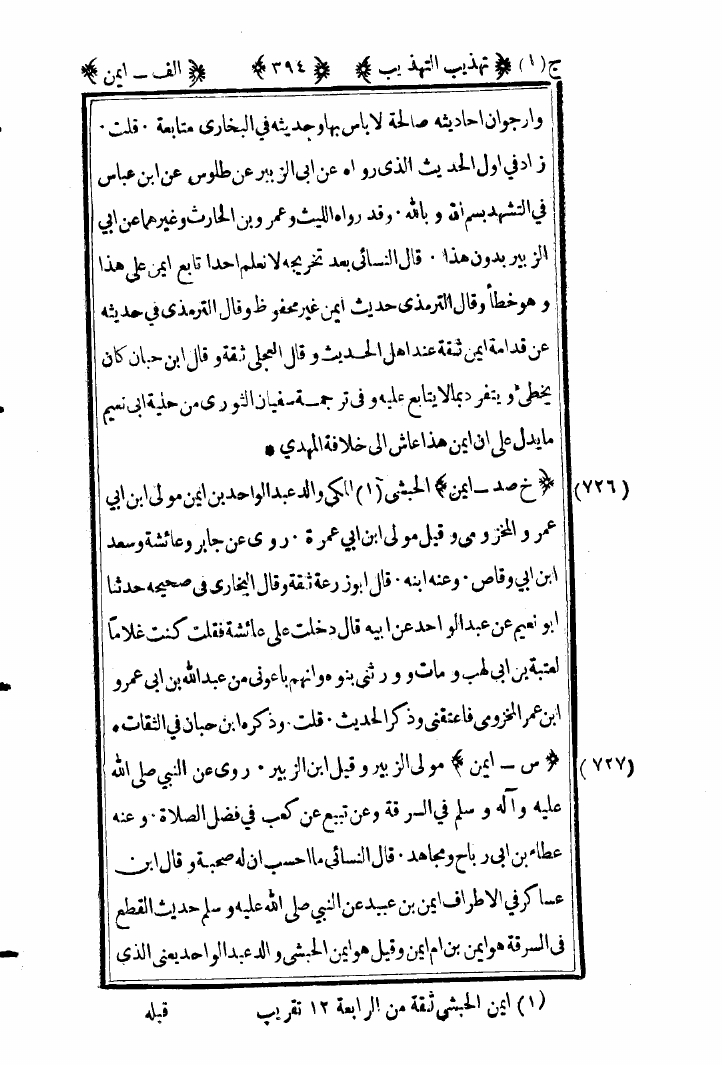 ج (١) ﴿ تهذيب التهذيب ﴾ ﴿ ٣٩٤ ﴾ ﴿ الف ــ ايمن ﴾
وارجوان احاديثه صالحة لا باس بها وحديثه في البخارى متابعة · قلت ·
زاد في اول الحديث الذى رواه عن ابى الزبير عن طاوس عن ابن عباس
في التشهد بسم الله و بالله · وقد رواه الليث وعمرو بن الحارث وغيرهما عن ابي
الزبير بدون هذا · قال النسائى بعد تخريجه لا نعلم احدا تابع ايمن على هذا
وهو خطأ وقال الترمذى حديث ايمن غير محفوظ وقال الترمذى في حديثه
عن قدامة ايمن ثقة عند اهل الحديث وقال العجلى ثقة وقال ابن حبان كان
يخطئ و يتفرد بمالا يتابع عليه وفى ترجمة سفيان الثورى من حلية ابى نعيم
مايدل على ان ايمن هذا عاش الى خلافة المهدي *
(٧٢٦) ﴿ خ صد ــ ايمن ﴾ الحبشى (١) المكى والد عبد الواحد بن ايمن مولى ابن ابي
عمرو المخزومى وقيل مولى ابن ابي عمرة · روى عن جابر وعائشة وسعد
ابن ابي وقاص · وعنه ابنه · قال ابو زرعة ثقة وقال البخارى فى صحيحه حدثنا
ابو نعيم عن عبد الواحد عن ابيه قال دخلت على عائشة فقلت كنت غلاماً
لعتبة بن ابي لهب و مات و ورثنى بنوه وانهم باعونى من عبد الله بن ابى عمرو
ابن عمر المخزومى فاعتقنى وذكر الحديث · قلت · وذكره ابن حبان في الثقات *
(٧٢٧) ﴿ س ــ ايمن ﴾ مولى الزبير وقيل ابن الزبير · روى عن النبي صلى الله
عليه وآله و سلم في السرقة وعن تبيع عن كعب في فضل الصلاة · وعنه
عطاء بن ابى رباح ومجاهد · قال النسائى ما احسب ان له صحبة وقال ابن
عساكر في الاطراف ايمن بن عبيد عن النبي صلى الله عليه و سلم حديث القطع
فى السرقة هو ايمن بن ام ايمن وقيل هو ايمن الحبشى والد عبد الواحد يعنى الذى
(١) ايمن الحبشي ثقة من الرابعة ١٢ تقريب
قبله